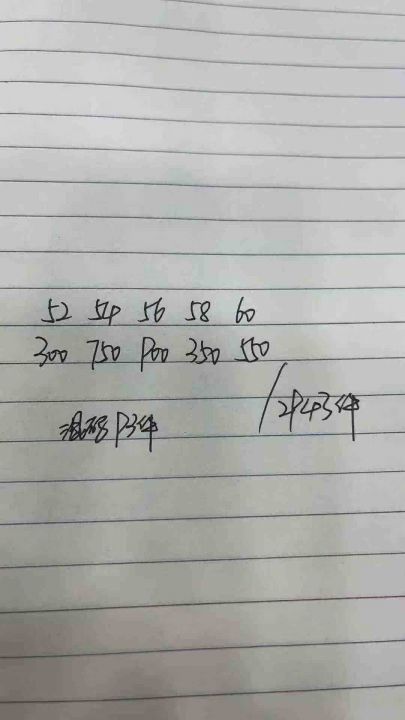 52 54 56 58 60
300 750 900 350 550
混码93件 /2943件